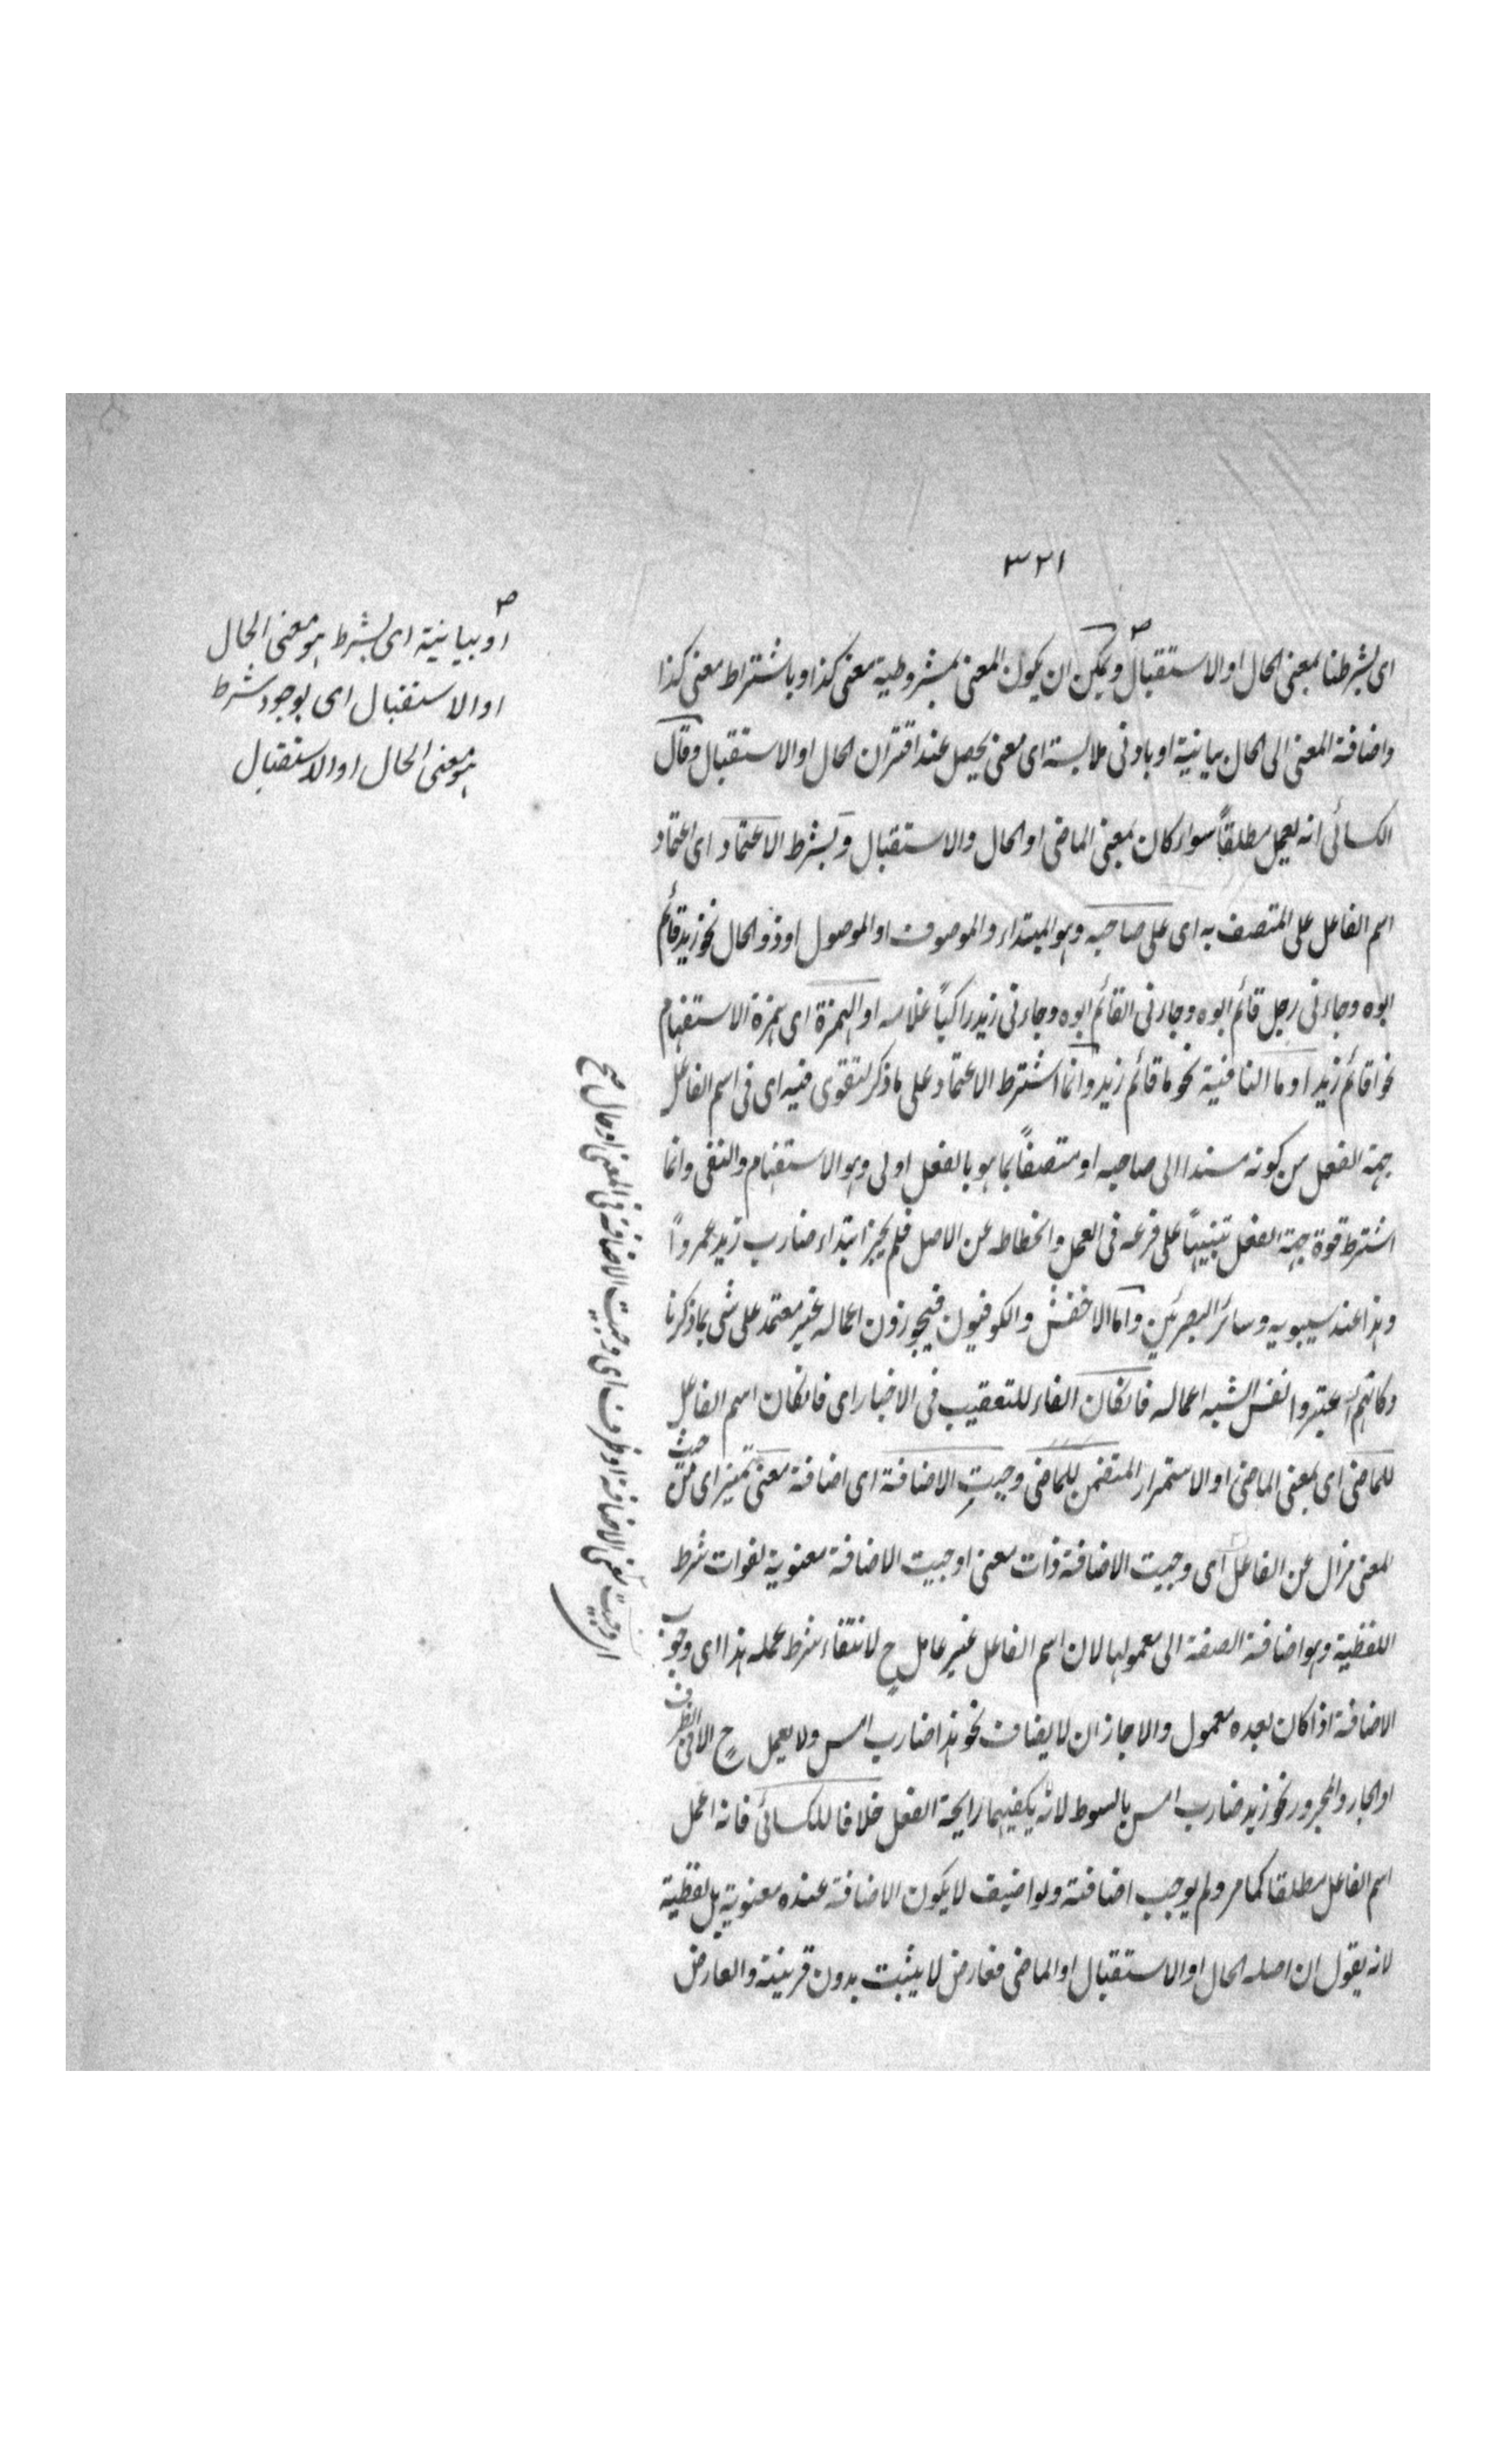 ٣٢١
اى بشرطنا بمعنى الحال او الاستقبال ويمكن ان يكون المعنى بمشروطية معنى كذا وباشتراط معنى كذا
واضافة المعنى الى الحال بيانية او بادنى ملابسة اى معنى يحصل عند اقتران الحال او الاستقبال وقال
الكسائى انه يعمل مطلقاً سواء كان بمعنى الماضى او الحال والاستقبال وبشرط الاعتماد اى اعتماد
اسم الفاعل على المتصف به اى على صاحبه وهو المبتداء والموصوف او الموصول او ذو الحال نحو زيد قائم
ابوه وجاءنى رجل قائم ابوه وجاءنى القائم ابوه وجاءنى زيد راكباً غلامه او الهمزة اى همزة الاستفهام
نحو اقائم زيد او ما النافية نحو ما قائم زيد وانما اشترط الاعتماد على ما ذكر لتقوى فيه اى فى اسم الفاعل
جهة الفعل من كونه مسندا الى صاحبه او متصفاً بما هو بالفعل اولى وهو الاستفهام والنفى وانما
اشترط قوة جهة الفعل تنبيهاً على فرعه فى العمل وانحطاطه عن الاصل فلم يجز ابتداء ضارب زيد عمرواً
وهذا عند سيبويه وسائر البصرئين واما الاخفش والكوفيون فيجوزون اعماله غير معتمد على شى بما ذكرنا
وكانهم اعتبروا نفس الشبه اعماله فانكان الفاء للتعقيب فى الاخبار اى فانكان اسم الفاعل
للماضى اى بمعنى الماضى او الاستمرار المتضمن للماضى وجبت الاضافة اى اضافة معنى تميز اى من حيث
المعنى مزال عن الفاعل اى وجبت الاضافة ذات معنى او جبت الاضافة معنوية لفوات شرط
اللفظية وهو اضافة الصفة الى معمولها لان اسم الفاعل غير عامل ح لانتفاء شرط عمله هذا اى وجوب
الاضافة اذا كان بعده معمول والا جاز ان لا يضاف نحو هذا ضارب امس ولا يعمل ح الا فى الظرف
او الجار والمجرور نحو زيد ضارب امس بالسوط لانه يكفيهما رايحة الفعل خلافا للكسائى فانه اعمل
اسم الفاعل مطلقا كما مر ولم يوجب اضافته ولو اضيف لا يكون الاضافة عنده معنوية بل لفظية
لانه يقول ان اصله الحال او الاستقبال او الماضى فعارض لا يثبت بدون قرينة والعارض
او بيانية اى بشرط هو معنى الحال
او الاستقبال اى بوجود شرط
هو معنى الحال او الاستقبال
او وجبت معنى الاضافة او ظرف اى وجبت الاضافة فى المعنى او حال